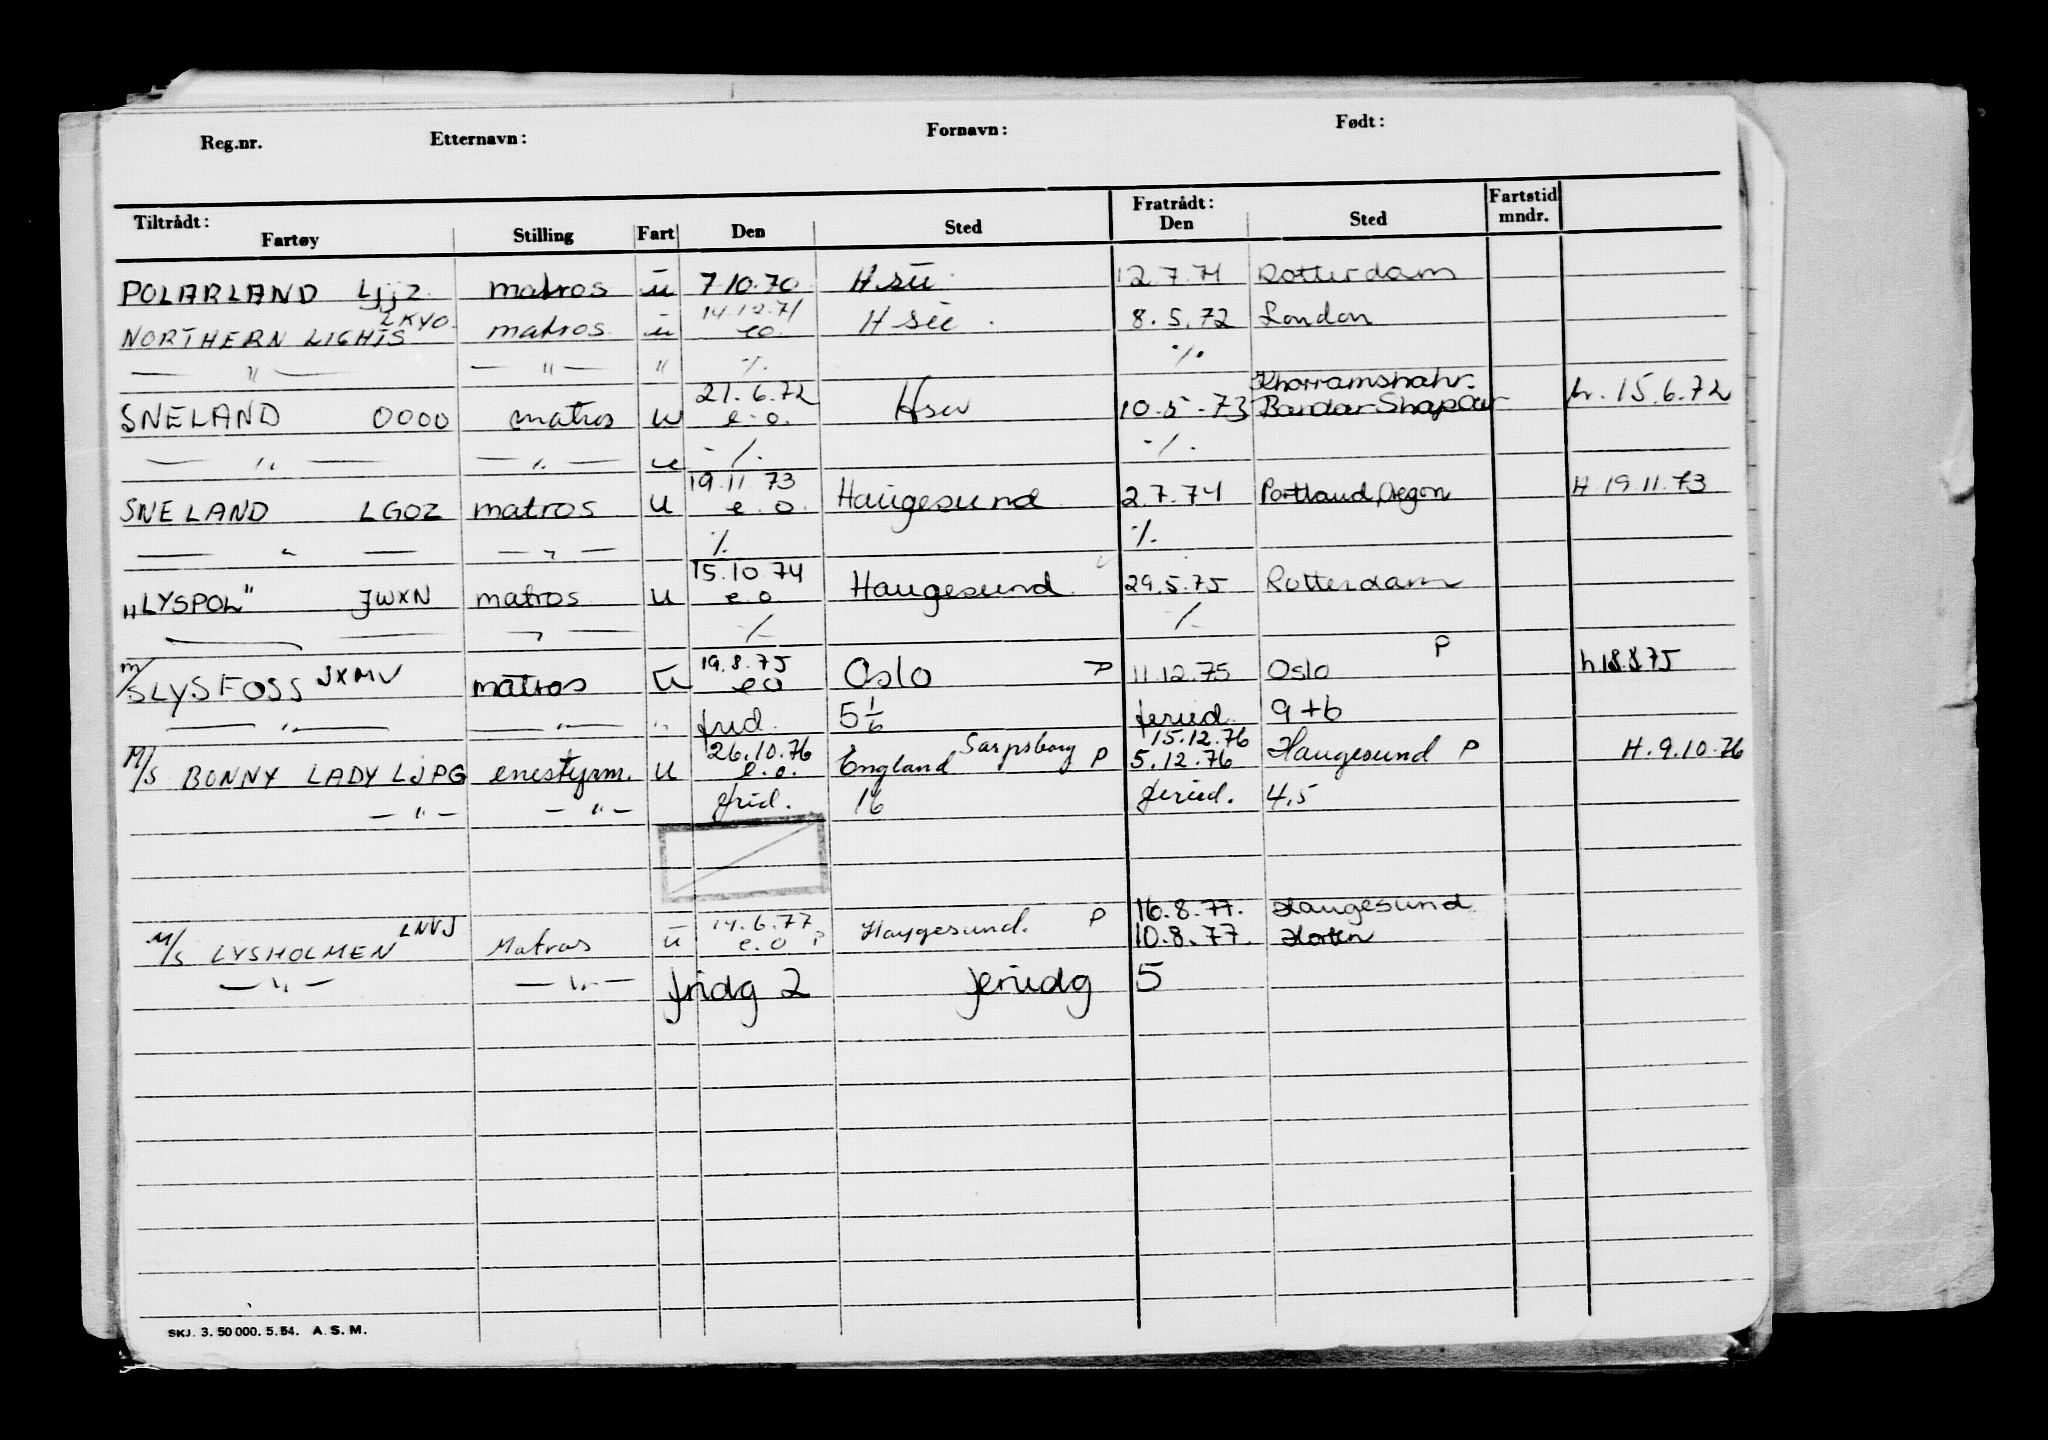 Reg.nr. Etternavn: Fornavn: Født:
Tiltrådt: Fratrådt: Fartstid
Fartøy Stilling Fart Den Sted Den Sted mndr.
POLARLAND Ljjz matros u 7.10.70 12.7.71 Rotterdam
LKYO 14.12.71
NORTHERN LIGHTS matros u eo. 8.5.72 London
— " — — " — " ·/. ·/.
21.6.72 Khorramshahr
SNELAND OOOO matros u e.o. 10.5.73 Bandar Shapour h. 15.6.72
— " — — " — u ·/. ·/.
19.11 73
SNELAND LGOZ matros u e.o. Haugesund 2.7.74 Portland, Oregon H 19.11.73
— " — — " — ·/. ·/.
15.10.74
"LYSPOL" JWXN matros u e.o Haugesund 29.5.75 Rotterdam
— — " — ·/. ·/.
19.8.75 P
m/s LYSFOSS JXMV matros u eo Oslo P 11.12.75 Oslo h 18.8.75
— " — — " — " frid. 5 1/6 feried. 9+6
26.10.76 Sarpsborg 15.12.76
M/S BONNY LADY LJPG enestyrm. u e.o. England P 5.12.76 Haugesund P H.9.10.76
— " — — " — frid. 16 feried. 4,5
LNVJ 14.6.77 16.8.77. Haugesund
M/S LYSHOLMEN Matros u e.o P Haugesund. P 10.8.77. Horten
— " — — " — fridg 2 feriedg 5
SKJ. 3. 50 000. 5. 54. A. S. M.